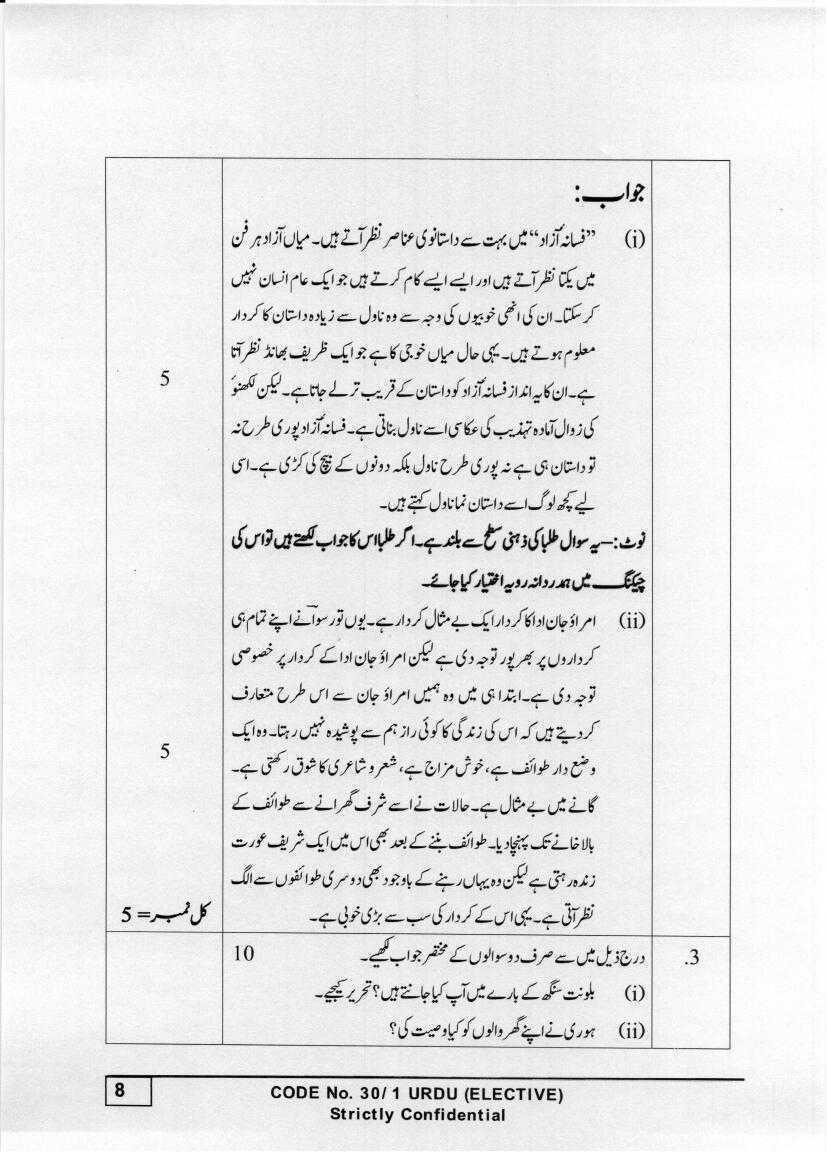 جواب:
(i) ”فسانۂ آزاد“ میں بہت سے داستانوی عناصر نظر آتے ہیں۔ میاں آزاد ہر فن
میں یکتا نظر آتے ہیں اور ایسے ایسے کام کرتے ہیں جو ایک عام انسان نہیں
کر سکتا۔ ان کی انھی خوبیوں کی وجہ سے وہ ناول سے زیادہ داستان کا کردار
معلوم ہوتے ہیں۔ یہی حال میاں خوجی کا ہے جو ایک ظریف بھانڈ نظر آتا
5
ہے۔ ان کا یہ انداز فسانۂ آزاد کو داستان کے قریب تر لے جاتا ہے۔ لیکن لکھنؤ
کی زوال آمادہ تہذیب کی عکاسی اسے ناول بناتی ہے۔ فسانۂ آزاد پوری طرح نہ
تو داستان ہی ہے نہ پوری طرح ناول بلکہ دونوں کے بیچ کی کڑی ہے۔ اسی
لیے کچھ لوگ اسے داستان نما ناول کہتے ہیں۔
نوٹ:– یہ سوال طلبا کی ذہنی سطح سے بلند ہے۔ اگر طلبا اس کا جواب لکھتے ہیں تو اس کی
چیکنگ میں ہمدردانہ رویہ اختیار کیا جائے۔
(ii) امراؤ جان ادا کا کردار ایک بے مثال کردار ہے۔ یوں تو رسواؔ نے اپنے تمام ہی
کرداروں پر بھرپور توجہ دی ہے لیکن امراؤ جان ادا کے کردار پر خصوصی
توجہ دی ہے۔ ابتدا ہی میں وہ ہمیں امراؤ جان سے اس طرح متعارف
کر دیتے ہیں کہ اس کی زندگی کا کوئی راز ہم سے پوشیدہ نہیں رہتا۔ وہ ایک
5
وضع دار طوائف ہے، خوش مزاج ہے، شعر و شاعری کا شوق رکھتی ہے۔
گانے میں بے مثال ہے۔ حالات نے اسے شرف گھرانے سے طوائف کے
بالا خانے تک پہنچا دیا۔ طوائف بننے کے بعد بھی اس میں ایک شریف عورت
زندہ رہتی ہے لیکن وہ یہاں رہنے کے باوجود بھی دوسری طوائفوں سے الگ
نظر آتی ہے۔ یہی اس کے کردار کی سب سے بڑی خوبی ہے۔
کل نمبر = 5
3. درج ذیل میں سے صرف دو سوالوں کے مختصر جواب لکھیے۔ 10
(i) بلونت سنگھ کے بارے میں آپ کیا جانتے ہیں؟ تحریر کیجیے۔
(ii) ہوری نے اپنے گھر والوں کو کیا وصیت کی؟
8
CODE No. 30/1 URDU (ELECTIVE)
Strictly Confidential